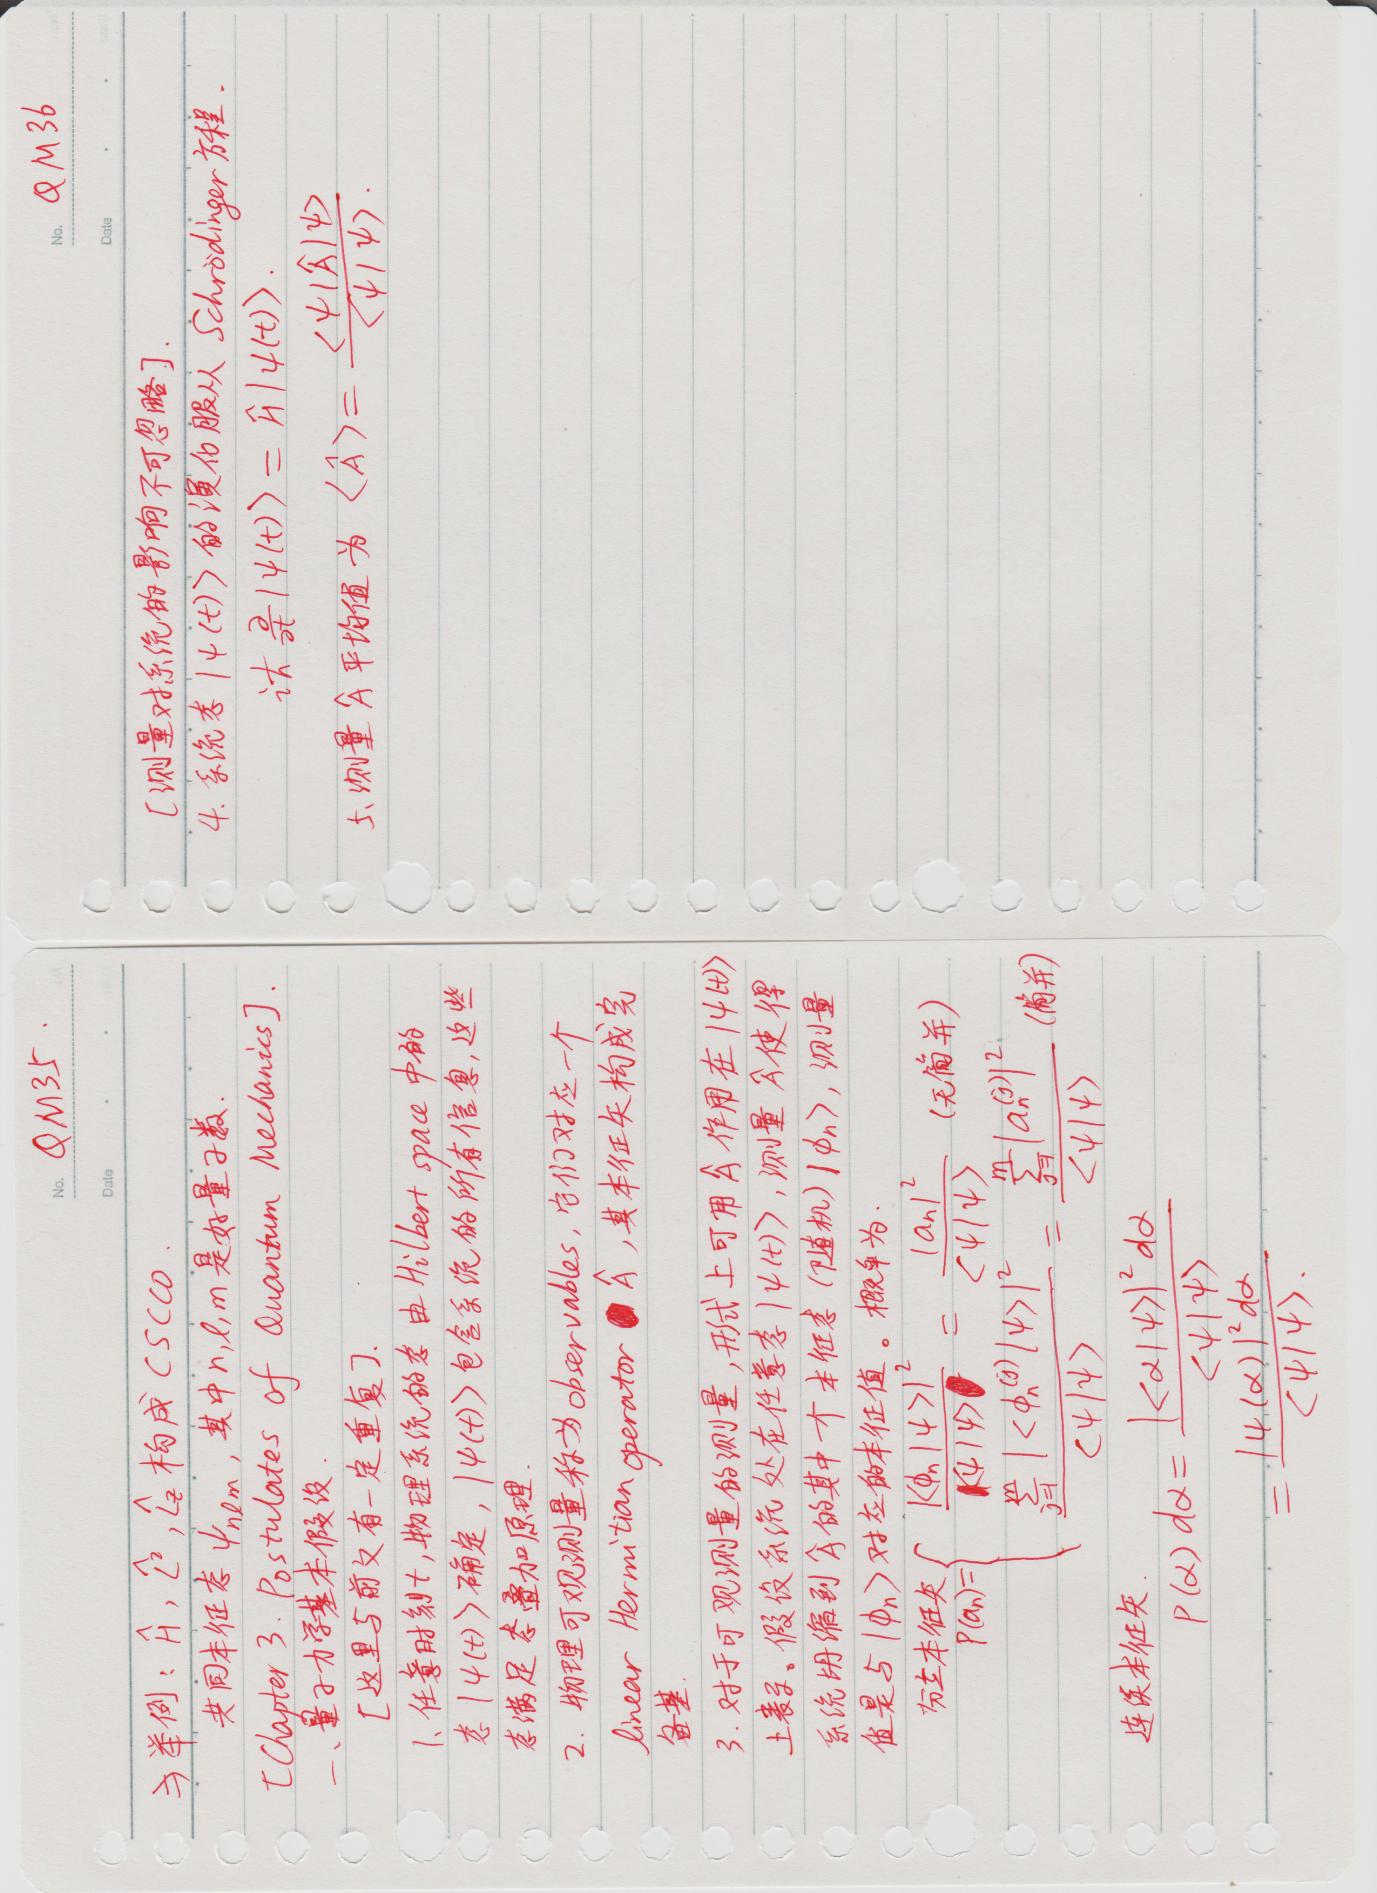 No. QM35.
Date
⇒举例: Ĥ, L̂², L̂z 构成 CSCCO.
共同本征态 ψnlm, 其中 n,l,m 是好量子数.
[Chapter 3. Postulates of Quantum Mechanics].
一、量子力学基本假设.
[这里与前文有一定重复].
1、任意时刻t,物理系统的态由 Hilbert space 中的
态 |ψ(t)〉确定, |ψ(t)〉包含系统的所有信息,这些
态满足态叠加原理.
2. 物理可观测量称为 observables, 它们对应一个
linear Hermitian operator Â, 其本征矢构成完
备基.
3. 对于可观测量的测量,形式上可用 Â 作用在 |ψ(t)〉
上表示。假设系统处在任意态 |ψ(t)〉, 测量 Â 使得
系统坍缩到 Â 的其中一个本征态 (随机) |ϕn〉, 测量
值是与 |ϕn〉对应的本征值。概率为.
分立本征矢
P(an) = { |〈ϕn|ψ〉|² / 〈ψ|ψ〉 = |an|² / 〈ψ|ψ〉 (无简并)
∑_{j=1}^{m} |〈ϕn^(j)|ψ〉|² / 〈ψ|ψ〉 = ∑_{j=1}^{m} |an^(j)|² / 〈ψ|ψ〉 (简并)
连续本征矢.
P(α) dα = |〈α|ψ〉|² dα / 〈ψ|ψ〉
= |ψ(α)|² dα / 〈ψ|ψ〉.
No. QM36
Date
[测量对系统的影响不可忽略].
4. 系统态 |ψ(t)〉的演化服从 Schrödinger 方程.
iħ ∂/∂t |ψ(t)〉 = Ĥ |ψ(t)〉.
5、测量 Â 平均值为 〈Â〉 = 〈ψ|Â|ψ〉 / 〈ψ|ψ〉.